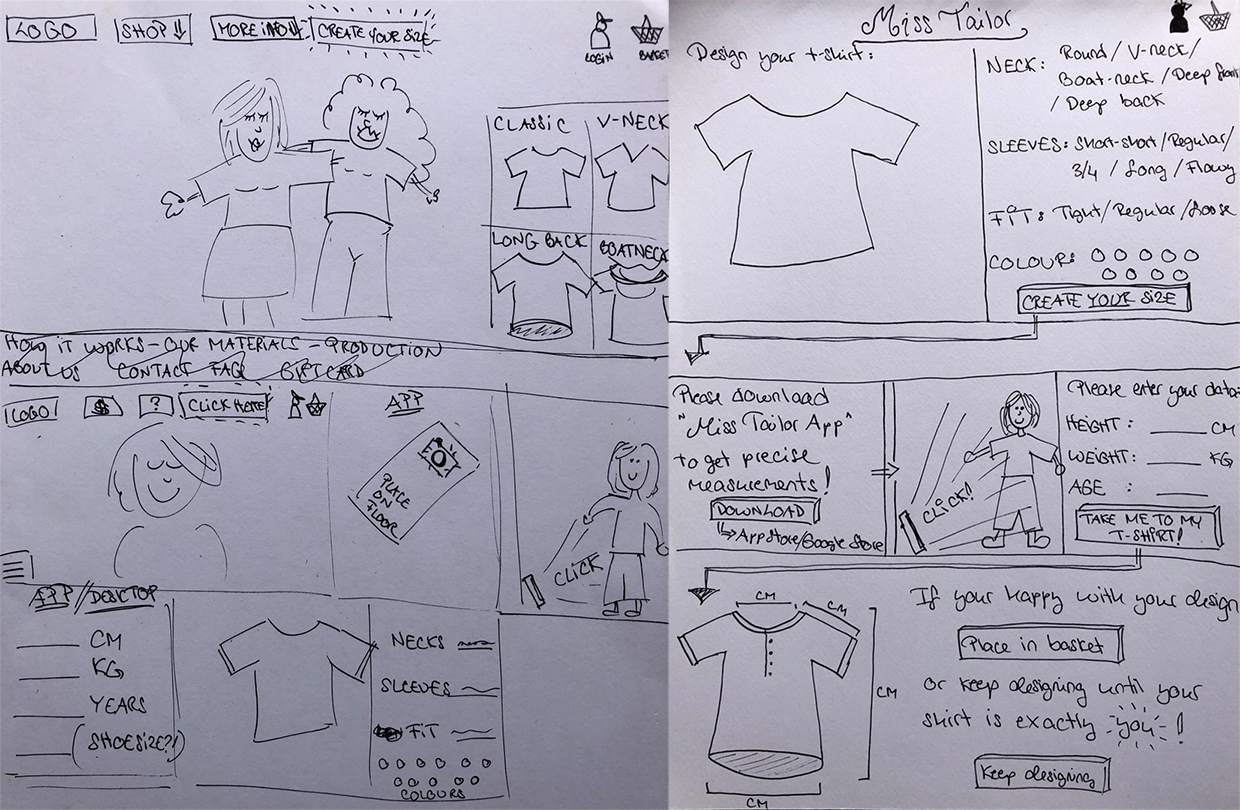 LOGO
SHOP
MORE iNFO
CREATE YOUR SIZE
LOGIN
BASKET
CLASSIC
V-NECK
LONG BACK
BOATNECK
HOW IT WORKS - OUR MATERIALS - PRODUCTION
ABOUT US CONTACT FAQ GIFT CARD
LOGO
$
?
CLICK HERE
APP
PLACE
ON
FLOOR
CLICK
APP/DESKTOP
CM
KG
YEARS
(SHOESIZE?!)
NECKS
SLEEVES
FiT
COLOURS
Miss Tailor
Design your t-shirt:
NECK: Round / V-neck/
Boat-neck / Deep
/ Deep back
SLEEVES: Short-short/Regular/
3/4 / Long / Flowy
FiT: Tight/Regular/Loose
COLOUR:
CREATE YOUR SIZE
Please download
"Miss Tailor App"
to get precise
measurements!
DOWNLOAD
App Store/Google Store
CLICK!
Please enter your data:
HEIGHT: CM
WEIGHT: KG
AGE :
TAKE ME TO MY
T-SHIRT!
CM
CM
CM
CM
If your happy with your design
Place in basket
or keep designing until your
shirt is exactly you!
Keep designing